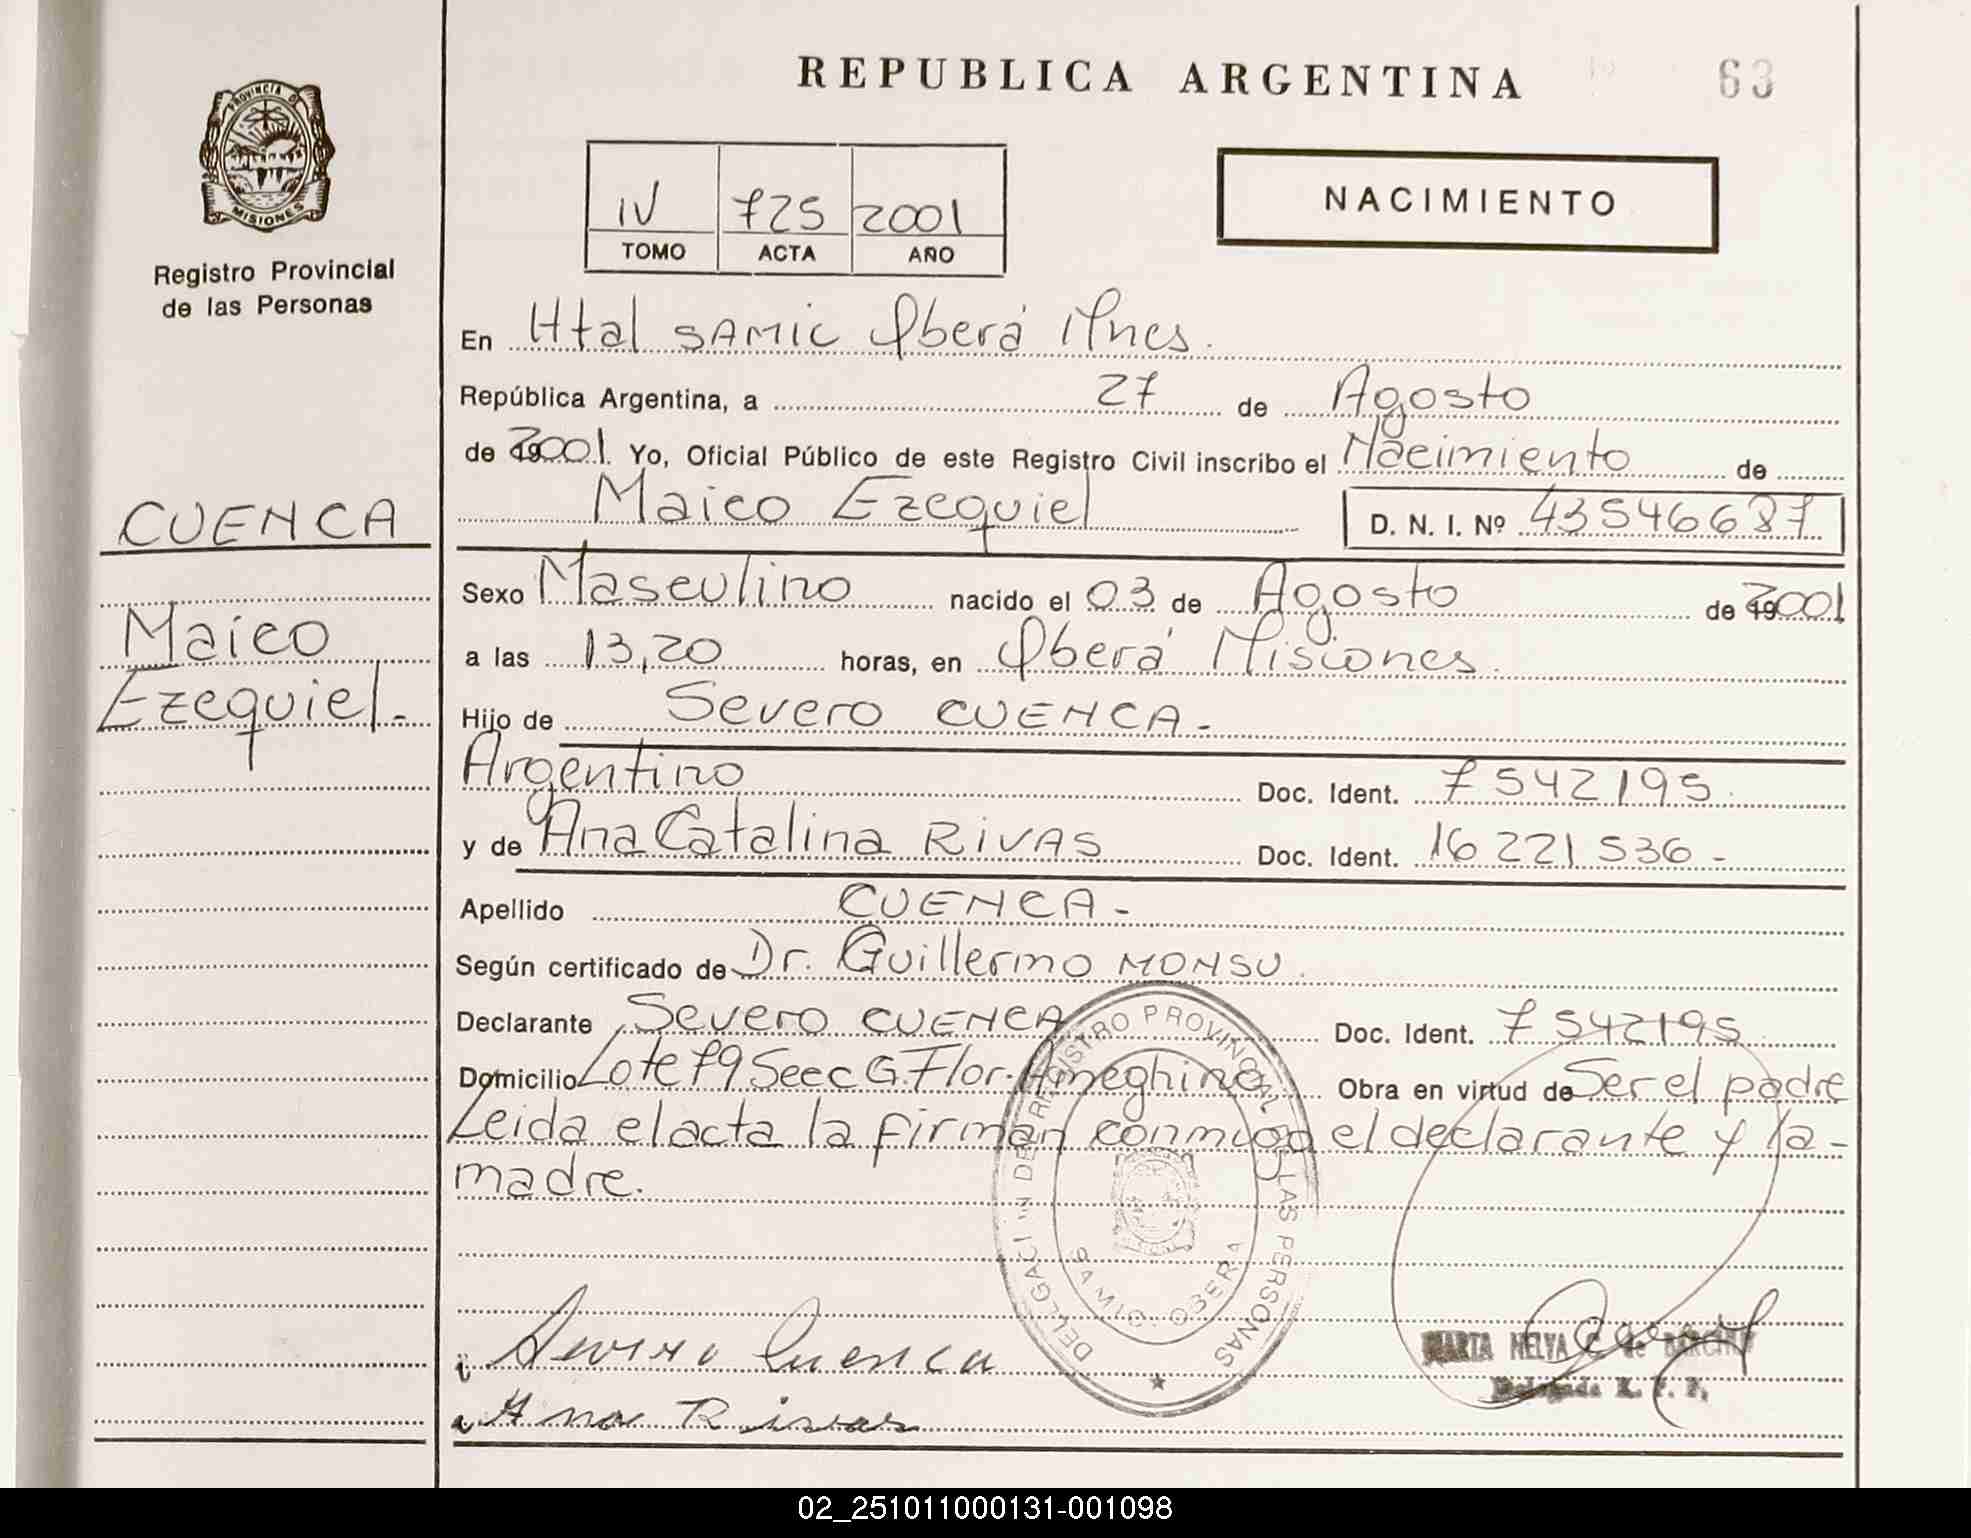 REPUBLICA ARGENTINA
63
PROVINCIA DE
MISIONES
Registro Provincial
de las Personas
IV 725 2001
TOMO ACTA AÑO
NACIMIENTO
En Htal SAMIC Oberá Mnes.
República Argentina, a 27 de Agosto
de 2001 Yo, Oficial Público de este Registro Civil inscribo el Nacimiento de
Maico Ezequiel D. N. I. Nº 43546687
CUENCA
Maico
Ezequiel.-
Sexo Masculino nacido el 03 de Agosto de 2001
a las 13,20 horas, en Oberá Misiones.
Hijo de Severo CUENCA.-
Argentino Doc. Ident. 7542195.
y de Ana Catalina RIVAS Doc. Ident. 16221536-
Apellido CUENCA-
Según certificado de Dr. Guillermo MONSU.
Declarante Severo CUENCA Doc. Ident. 7542195
Domicilio Lote 79 Secc G. Flor. Ameghino Obra en virtud de Ser el padre
Leida el acta la firman conmigo el declarante y la-
madre.
DELEGACION DEL REGISTRO PROVINCIAL DE LAS PERSONAS
SAMIC - OBERA
Severo Cuenca
MARTA NELVA C. de
Delegada R. P. P.
Ana Rivas
02_251011000131-001098